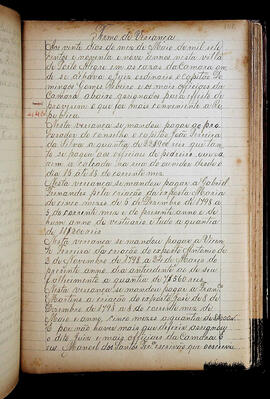 Thermo de Vereança
Aos vinte dias do mez de Maio de mil sete
centos e noventa e nove annos nesta villa
de Porto Alegre em as casas da Camara on
de se achava o Juiz ordinario e Capitão Do
mingos Gomes Ribeiro e os mais officiaes da
Camara abaixo assignados para effeito de
proverem o que for mais conveniente a Re
publica
Nesta vereança se mandou pagar ao pro
curador do conselho o capitão João Ferreira
da Silva a quantia de que tan
to se pagou aos officiaes de pedreiro
no seu de
dia 15 té 18 do corrente mez
Nesta vereança se mandou pagar a Gabriel
Fernandes pela criação da exposta Maria
de cinco mezes de 6 de Dezembro de 1798 a
5 do corrente mez e do presente anno e de
hum anno de vestiario e tudo a quantia
de
Nesta vereança se mandou pagar a Vicen
te Ferreira da criação do exposto Antonio de
2 de Novembro de 1798 a 24 de Março do
presente anno dia antecedente ao de seu
falecimento a quantia de 7$560 reis
Nesta vereança se mandou pagar a Fran.co
Martins a criação do exposto José de 8 de
Dezembro de 1798 a 8 do corrente mez de
Maio e anno, cinco mezes a quantia de
E por não haver mais que deferir assignou
o dito Juiz e mais officiaes da Camara. E
eu Manoel dos Santos escrivão que escrevi